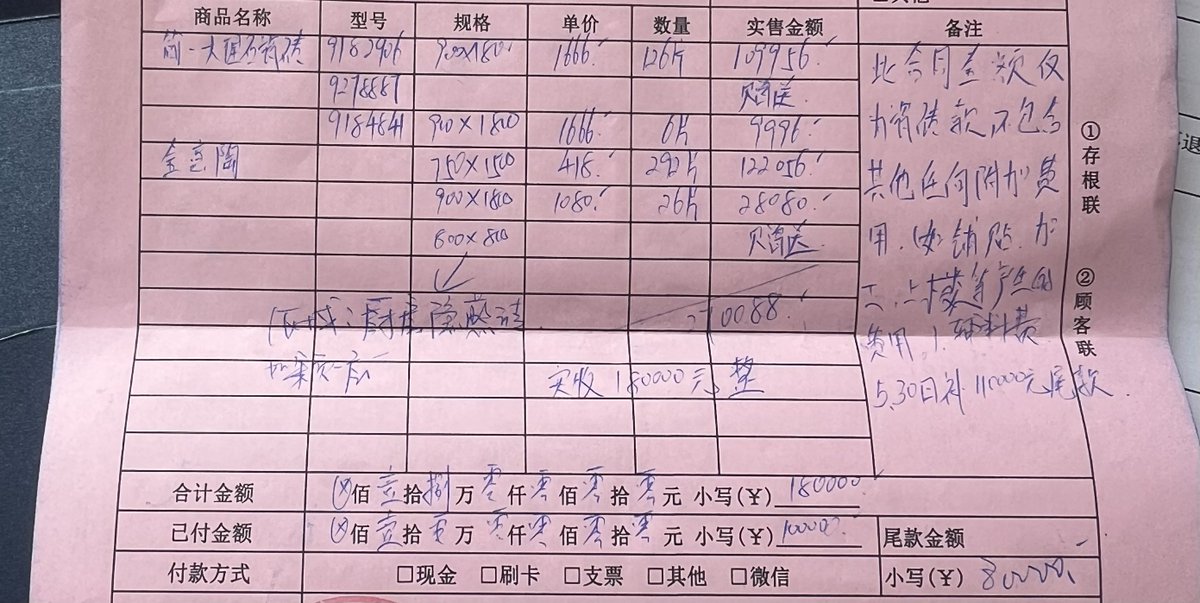 商品名称 型号 规格 单价 数量 实售金额 备注
9182906 900×1800 1666 126片 109956
9278887 赠送
9184841 900×1800 1666 6片 9996
750×1500 418 292片 122056
900×1800 1080 26片 28080
600×800 赠送
实收180000元整
此合同金额仅
为瓷砖款,不包含
其他任何附加费
用.如铺贴.加
工.上楼等产生的
费用
5.30日补110000元尾款
合计金额 ⊗佰壹拾捌万零仟零佰零拾零元 小写(¥) 180000
已付金额 佰壹拾 万零仟零佰零拾零元 小写(¥) 尾款金额
付款方式 □现金 □刷卡 □支票 □其他 □微信 小写(¥) 80000
①存根联
②顾客联